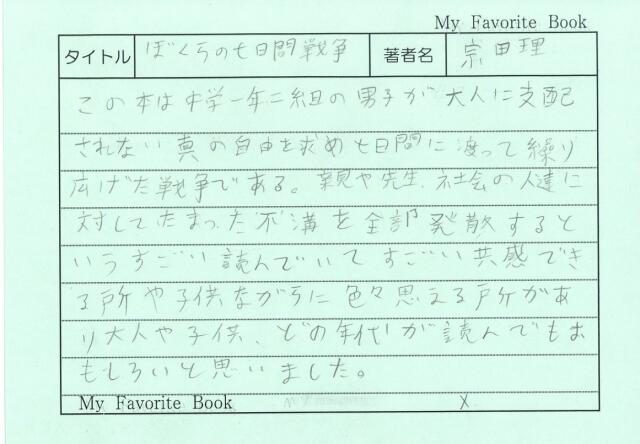 My Favorite Book
タイトル ぼくらの七日間戦争 著者名 宗田理
この本は中学一年二組の男子が大人に支配
されない真の自由を求め七日間に渡って繰り
広げた戦争である。親や先生、社会の人達に
対してたまった不満を全部発散すると
いうすごい読んでいてすごい共感でき
る所や子供ながらに色々思える所があ
り大人や子供、どの年代が読んでもお
もしろいと思いました。
My Favorite Book